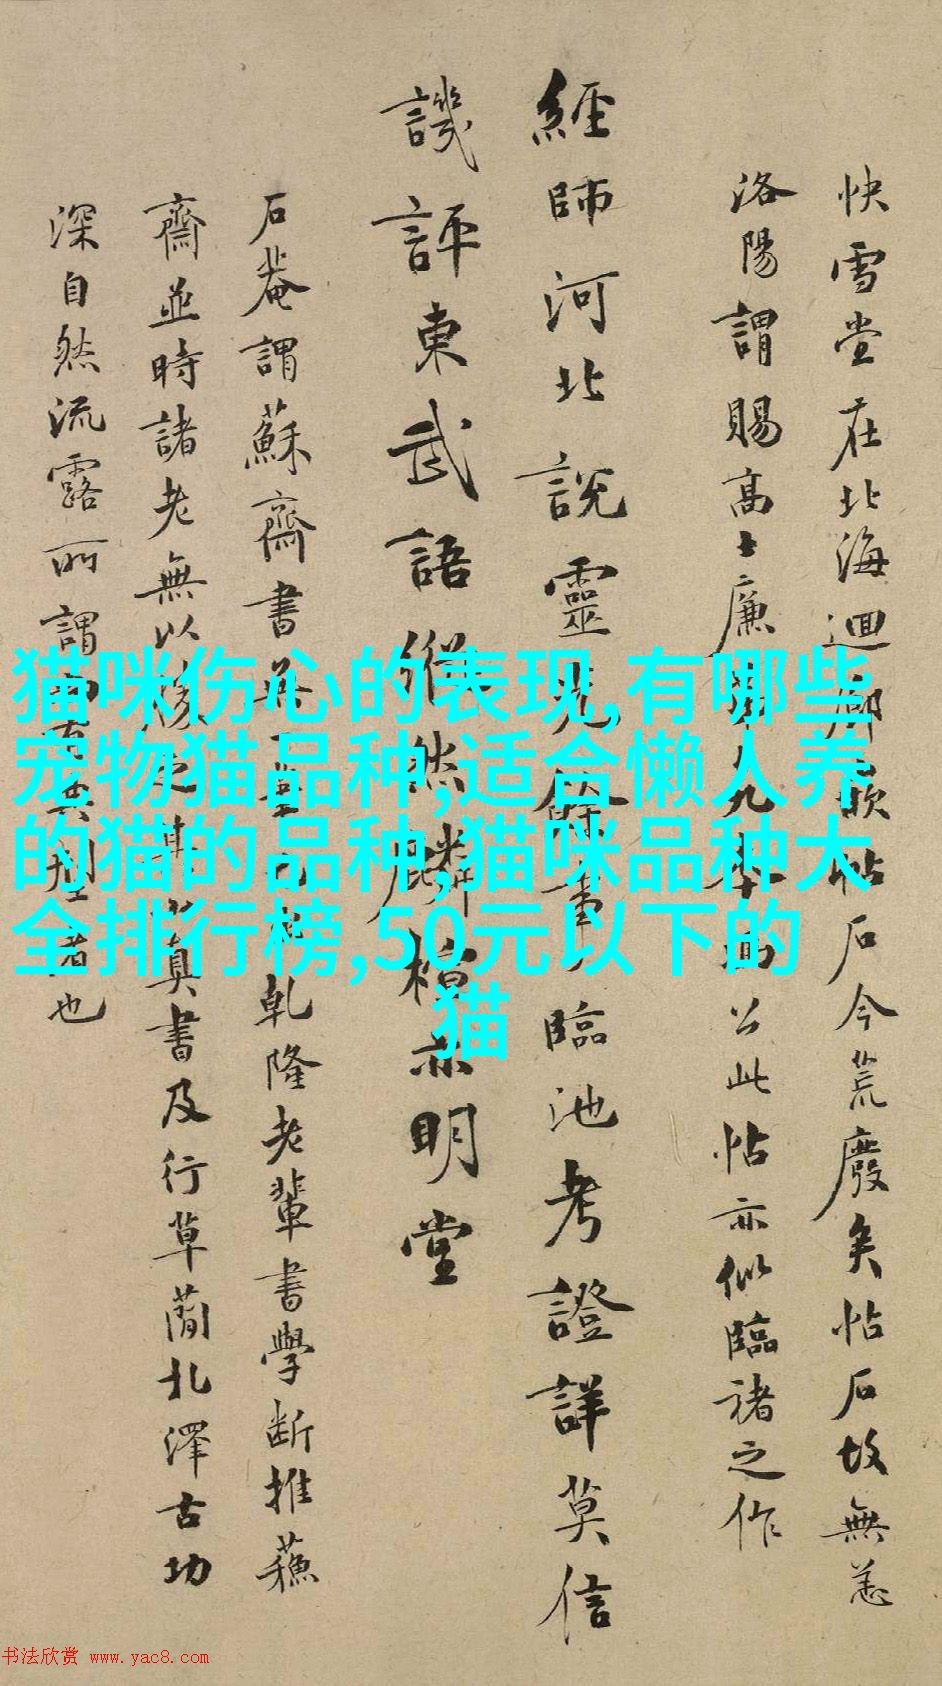 快雪堂在北海迴廊嵌帖石今荒廢矣帖石故無恙
洛陽謂賜高士廉
公此帖亦似臨褚之作
經師河北說靈光餘事臨池考證詳莫信
譏評東武語縱然麟楦亦明堂
石菴謂蘇齋書無一筆
乾隆老輩書學斷推蘇
齋並時諸老無以
真書及行草蘭北澤古功
深自然流露所謂
者也
猫咪伤心的表现,有哪些
宠物猫品种,适合懒人养
的猫的品种,猫咪品种大
全排行榜,50元以下的
猫
书法欣赏 www.yac8.com